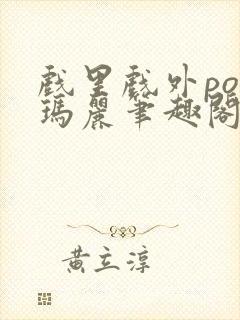 戲里戲外po
瑪麗筆趣閣
黃立淳